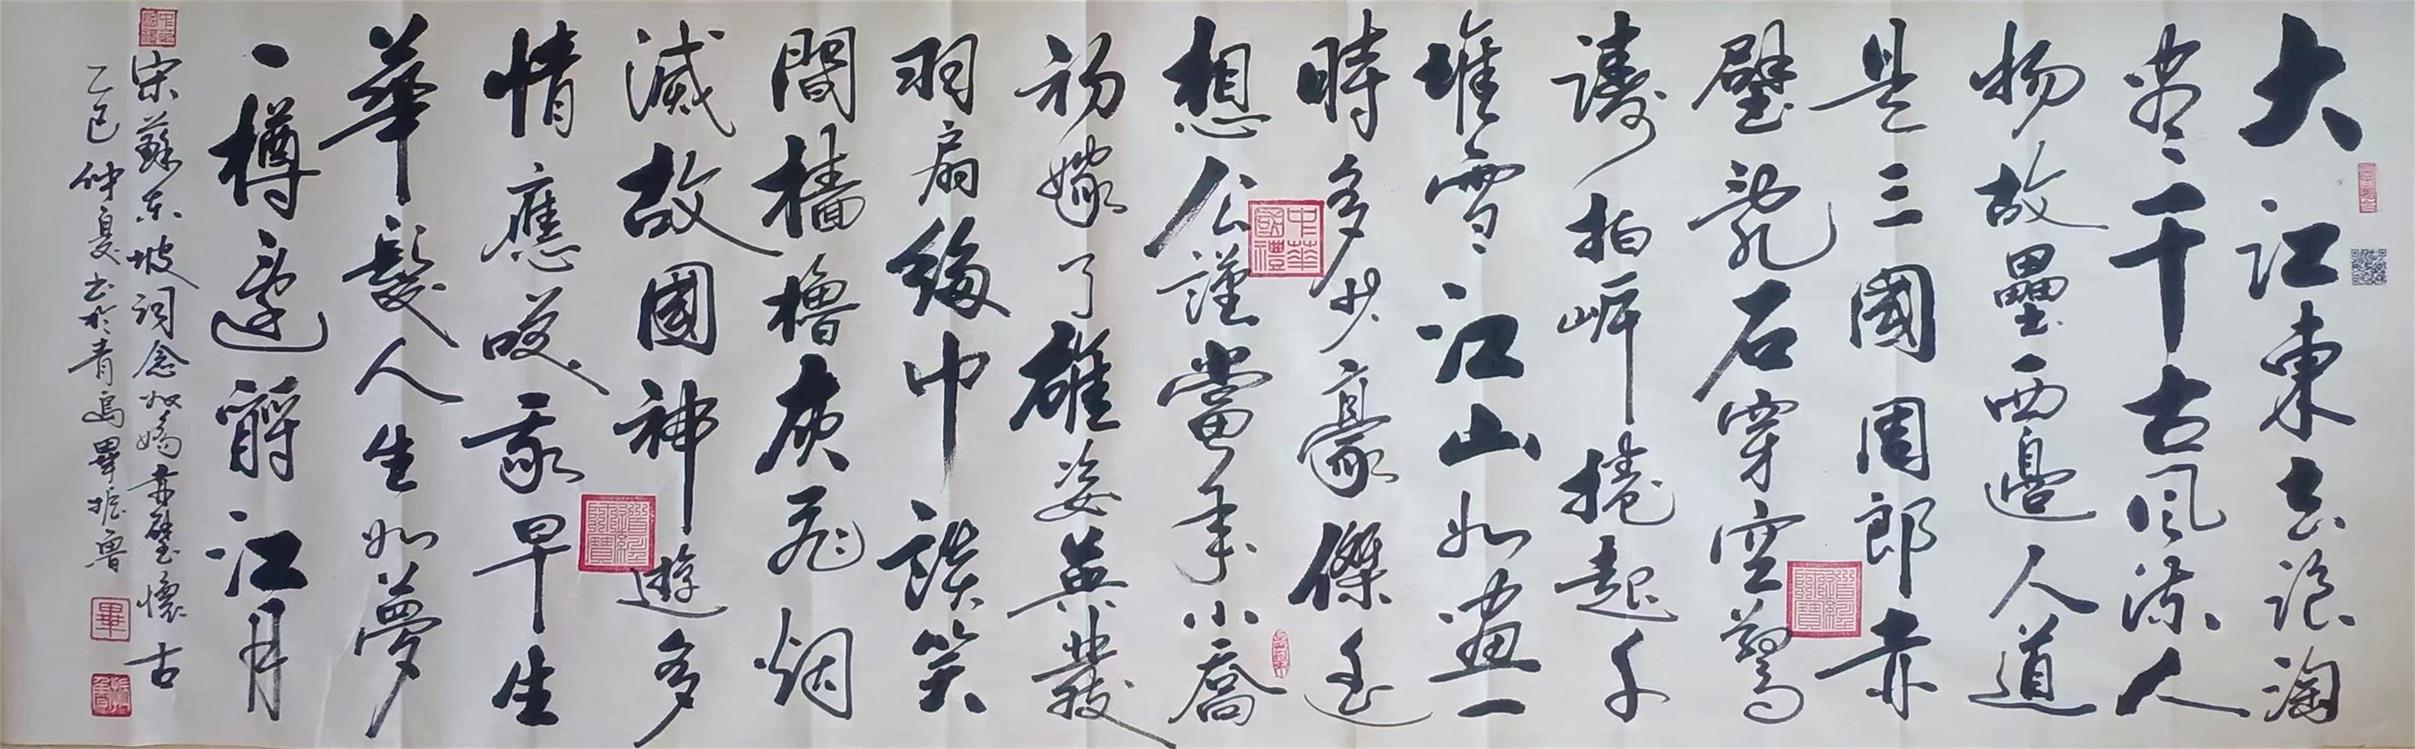 大江東去浪淘
盡千古風流人
物故壘西邊人道
是三國周郎赤
壁亂石穿空驚
濤拍岸捲起千
堆雪江山如畫一
時多少豪傑遙
想公謹當年小喬
初嫁了雄姿英發
羽扇綸巾談笑
間檣櫓灰飛烟
滅故國神遊多
情應咲我早生
華髮人生如夢
一樽還酹江月
宋蘇東坡詞念奴嬌赤壁懷古
乙巳仲夏書於青島畢振魯
中華國禮
畢
振魯